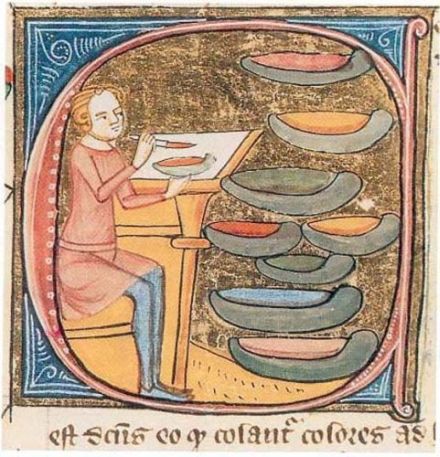 est dc̃us eo ꝙ colant᷑ colores ad